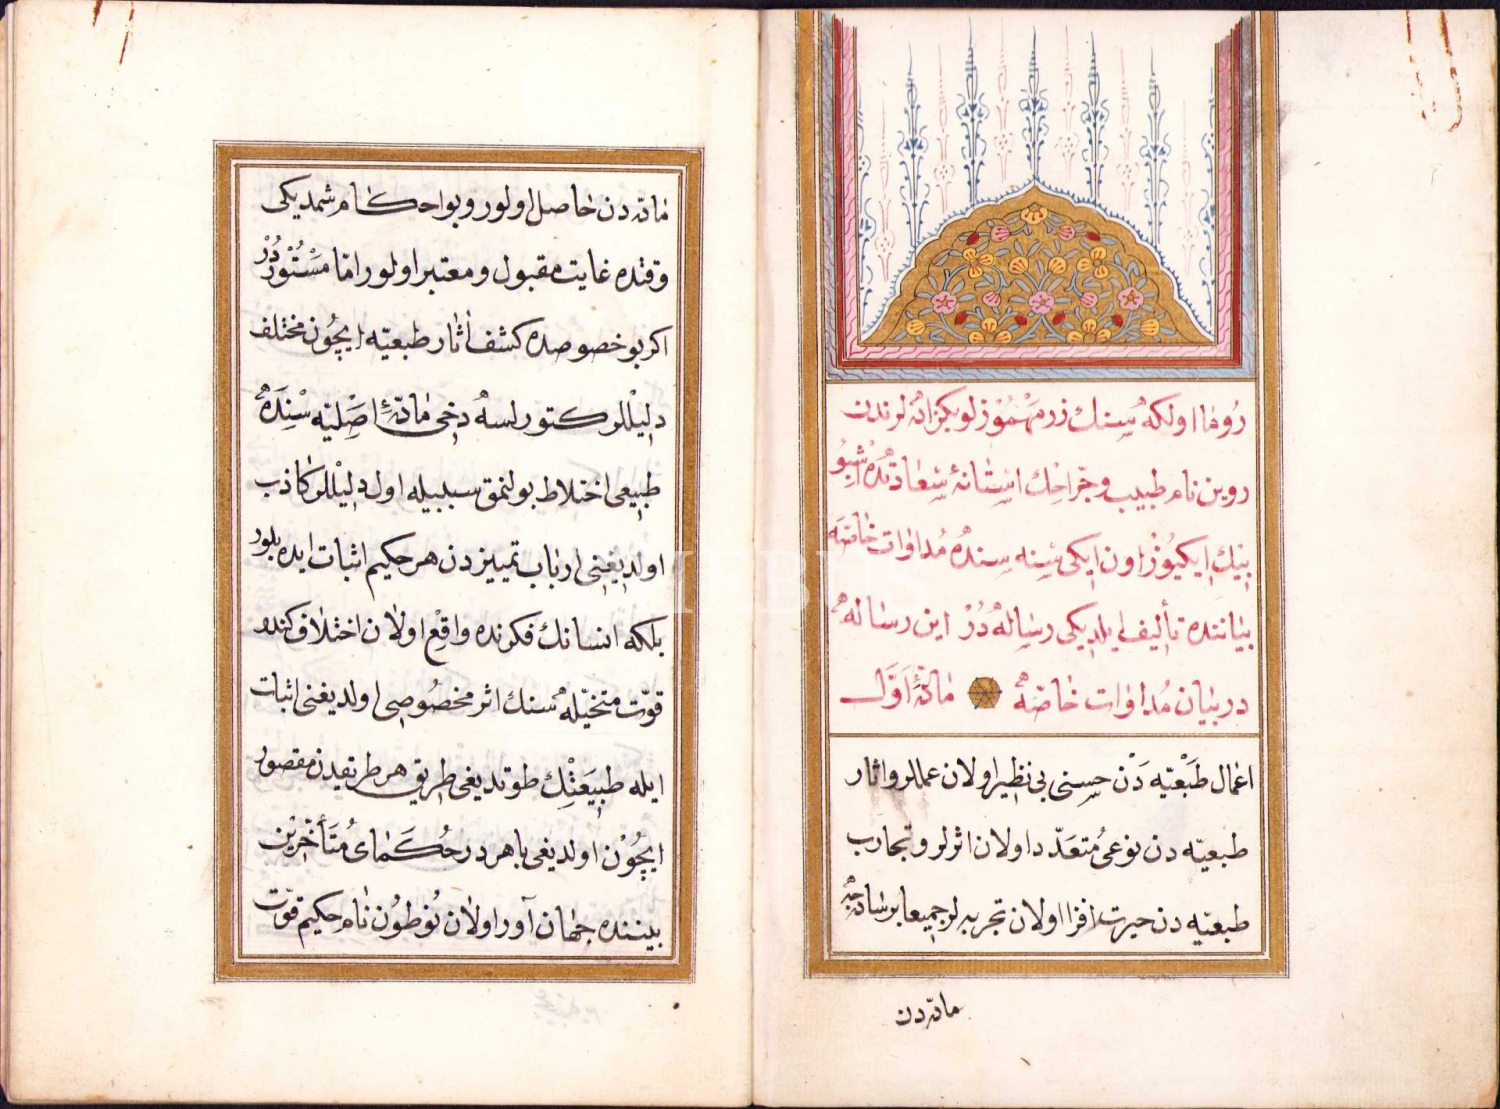 روما اولكه سنك زر مهموز لو بكزاده لرندن
روين نام طبيب و جراحك استانهٔ سعادتده اشبو
بيك ايكيوز اون ايكى سنه سنده مداوات خاصه
بياننده تأليف ايلديكى رساله در اين رساله
در بيان مداوات خاصه مادهٔ اول
اعمال طبعيه دن حسنى بى نظير اولان عمللر و اثار
طبعيه دن نوعى متعدد اولان اثرلر و تجارب
طبعيه دن حيرت افزا اولان تجربه لر جميعا بر ساده جه
ماده دن
ماده دن حاصل اولور و بو احكام شمديكى
وقتده غايت مقبول و معتبر اولور اما مستور در
اكر بو خصوصده كشف اثار طبعيه ايچون مختلف
دليللر كتورلسه دخى مادهٔ اصليه سنده
طبيعى اختلاط بولنمق سببيله اول دليللر كاذب
اولديغنى ارباب تمييزدن هر حكيم اثبات ايده بلور
بلكه انسانك فكرنده واقع اولان اختلاف كندو
قوت متخيله سنك اثر مخصوصى اولديغنى اثبات
ايله طبيعتك طوتديغى طريق هر طريقدن مقصور
ايچون اولديغى باهر در حكماى متأخرين
بيننده جهان آور اولان نوطون نام حكيم قوت